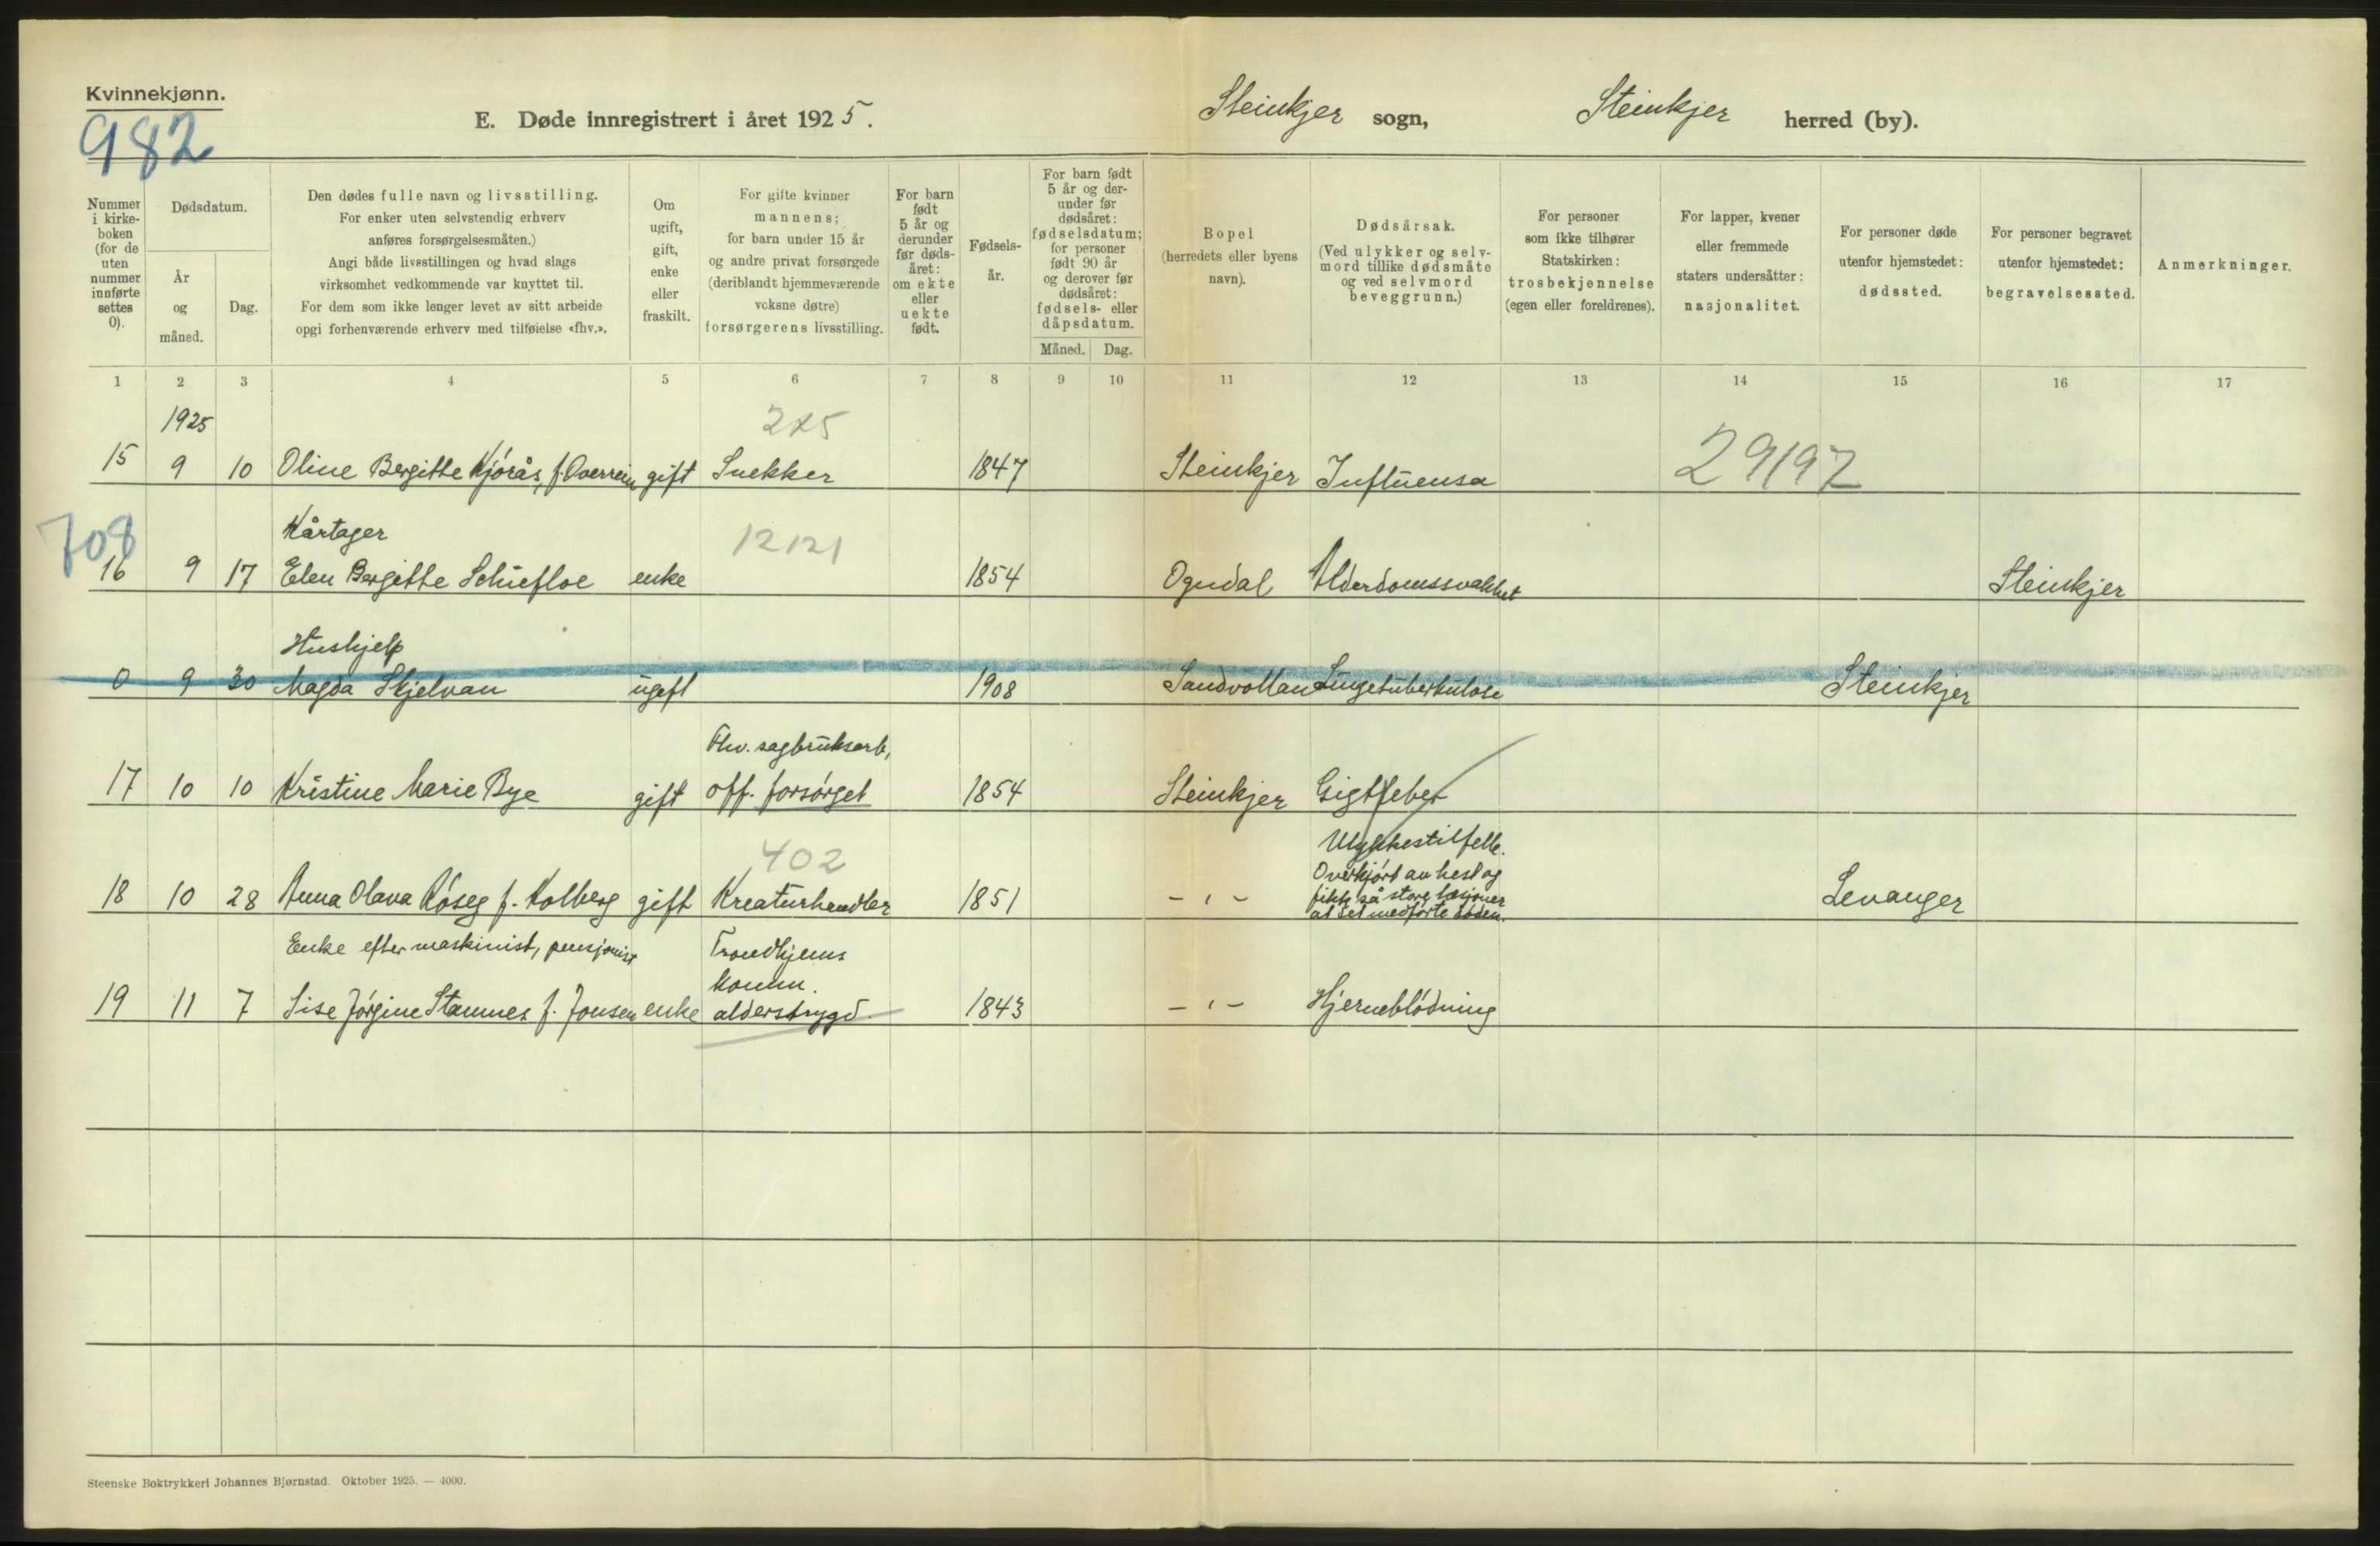 Kvinnekjønn.
982
E. Døde innregistrert i året 1925.
Steinkjer sogn,
Steinkjer herred (by).
Nummer i kirke-
boken
(for de
uten
nummer
innførte
settes
0).
Dødsdatum.
År
og
måned.
Dag.
Den dødes fulle navn og livsstilling.
For enker uten selvstendig erhverv
anføres forsørgelsesmåten.)
Angi både livsstillingen og hvad slags
virksomhet vedkommende var knyttet til.
For dem som ikke lenger levet av sitt arbeide
opgi forhenværende erhverv med tilføielse «fhv.».
Om
ugift,
gift,
enke
eller
fraskilt.
For gifte kvinner
mannens;
for barn under 15 år
og andre privat forsørgede
(deriblandt hjemmeværende
voksne døtre)
forsørgerens livsstilling.
For barn
født
5 år og
derunder
før døds-
året:
om ekte
eller
uekte
født.
Fødsels-
år.
For barn født
5 år og der-
under før
dødsåret:
fødselsdatum;
for personer
født 90 år
og derover før
dødsåret:
fødsels- eller
dåpsdatum.
Måned. Dag.
Bopel
(herredets eller byens
navn).
Dødsårsak.
(Ved ulykker og selv-
mord tillike dødsmåte
og ved selvmord
beveggrunn.)
For personer
som ikke tilhører
Statskirken:
trosbekjennelse
(egen eller foreldrenes).
For lapper, kvener
eller fremmede
staters undersåtter:
nasjonalitet.
For personer døde
utenfor hjemstedet:
dødssted.
For personer begravet
utenfor hjemstedet:
begravelsessted.
Anmerkninger.
1 2 3 4 5 6 7 8 9 10 11 12 13 14 15 16 17
1925
15 9 10 Oline Bergitte Kjórås, f. Overrein gift Snekker 1847 Steinkjer Influensa 29197
708
Kårtager
12121
16 9 17 Elen Bergitte Schiefloe enke 1854 Ogndal Alderdomssvakhet Steinkjer
Hushjelp
0 9 30 Magda Skjelvan ugift 1908 Sandvollan Lungetuberkulose Steinkjer
Fhv. sagbruksarb,
17 10 10 Kristine Marie Bye gift off. forsórget 1854 Steinkjer Gigtfeber
402
Ulykkestilfelle.
Overkjórt av hest og
fikk så store læsjoner
at det medførte døden.
18 10 28 Anna Olava Róseg f. Kolberg gift Kreaturhandler 1851 - " - Levanger
Enke efter maskinist, pensjonist
Trondhjems
komm.
19 11 7 Lise Jórgine Stamnes f. Jonsen enke alderstrygd. 1843 - " - Hjerneblódning
Steenske Boktrykkeri Johannes Bjørnstad. Oktober 1925. — 4000.